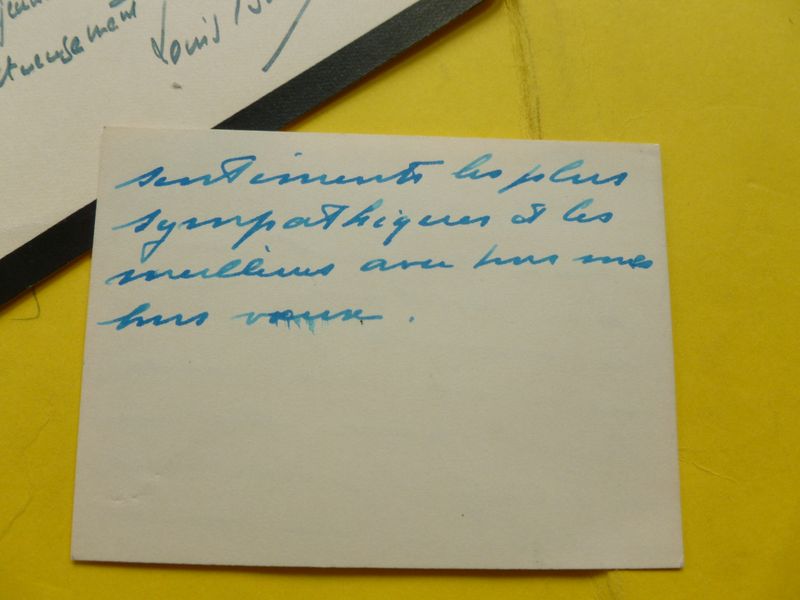 Louis
sentiments les plus
sympathiques et les
meilleurs avec tous mes
bons vœux.